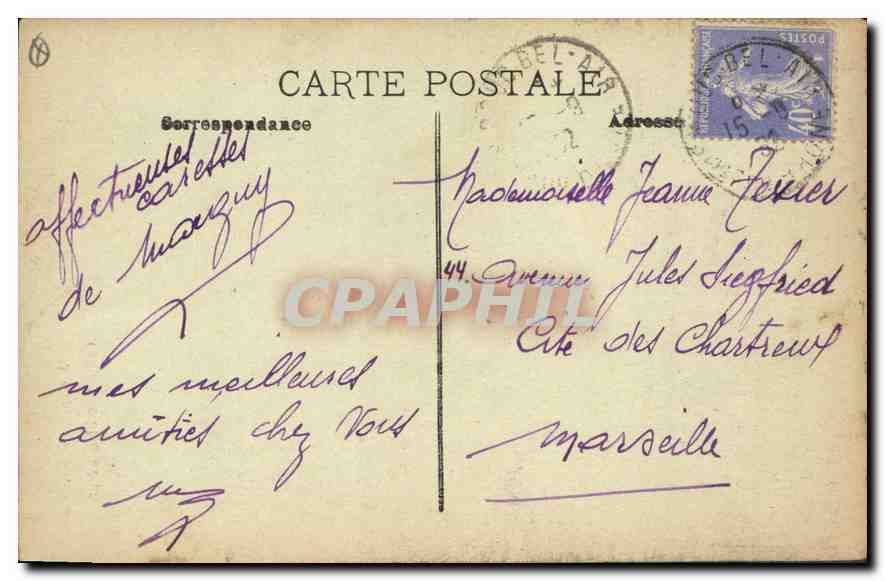 CARTE POSTALE
Correspondance
Adresse
affectueuses
caresses
de Margny
mes meilleures
amitiés chez Vous
Mademoiselle Jeanne Texier
44. Avenue Jules Siegfried
Cité des Chartreux
Marseille
BEL-AIR
BEL-AIR
15
POSTES
REPUBLIQUE FRANÇAISE
40
CPAPHIL